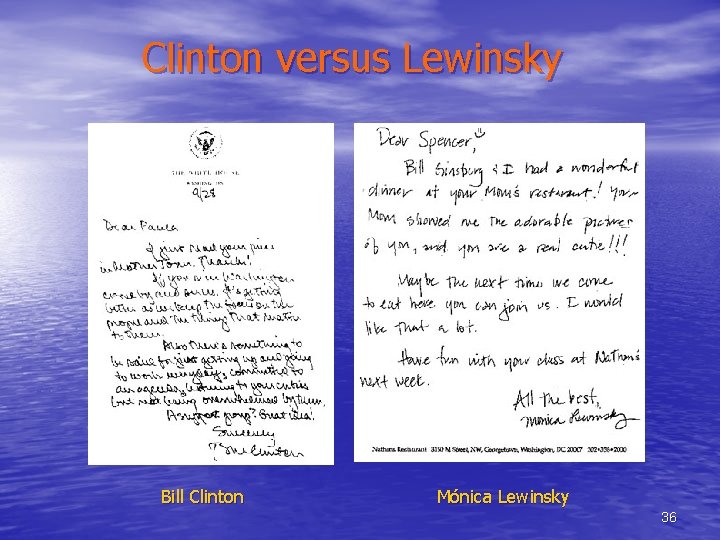 Clinton versus Lewinsky
THE WHITE HOUSE
WASHINGTON
9/28
Dear Paula
I just read your piece
in Mother Jones. Thanks!
If you're in Washington
come by and
better as we keep the focus on the
people and the things that matter
to them.
Also there's something to
be said for just getting up and going
to work everyday, committed to
an agenda, listening to your critics
but not being overwhelmed by them.
A support group? Great idea!
Sincerely
Bill Clinton
Dear Spencer,
Bill Ginsburg & I had a wonderful
dinner at your Mom's restaurant! Your
Mom showed me the adorable pictures
of you, and you are a real cutie!!!
Maybe the next time we come
to eat here you can join us. I would
like that a lot.
Have fun with your class at Nathan's
next week.
All the best,
Monica Lewinsky
Nathans Restaurant 3150 M Street, NW, Georgetown, Washington, DC 20007 202•338•2000
Bill Clinton
Mónica Lewinsky
36